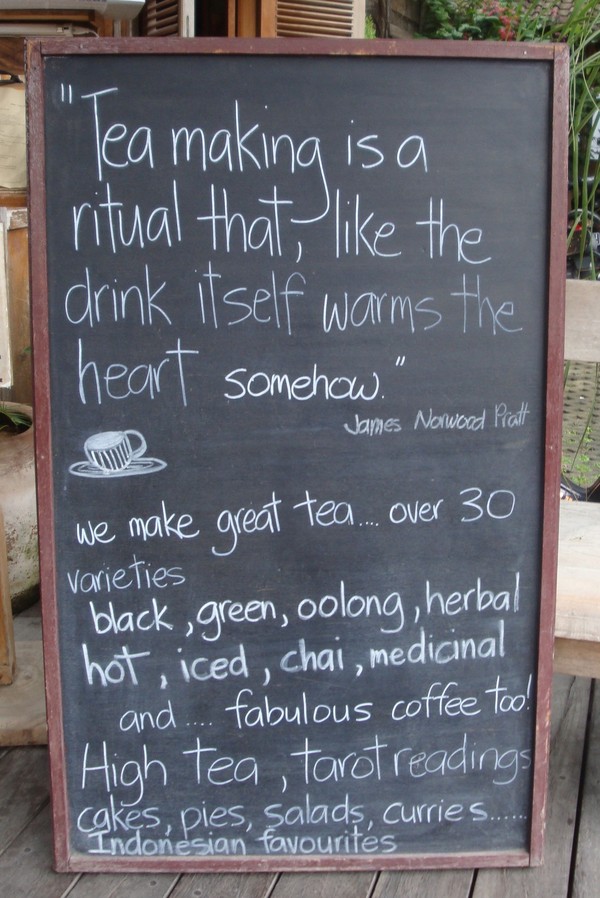 "Tea making is a
ritual that, like the
drink itself warms the
heart somehow."
James Norwood Pratt
we make great tea.... over 30
varieties
black, green, oolong, herbal
hot, iced, chai, medicinal
and.... fabulous coffee too!
High tea, tarot readings
cakes, pies, salads, curries......
Indonesian favourites